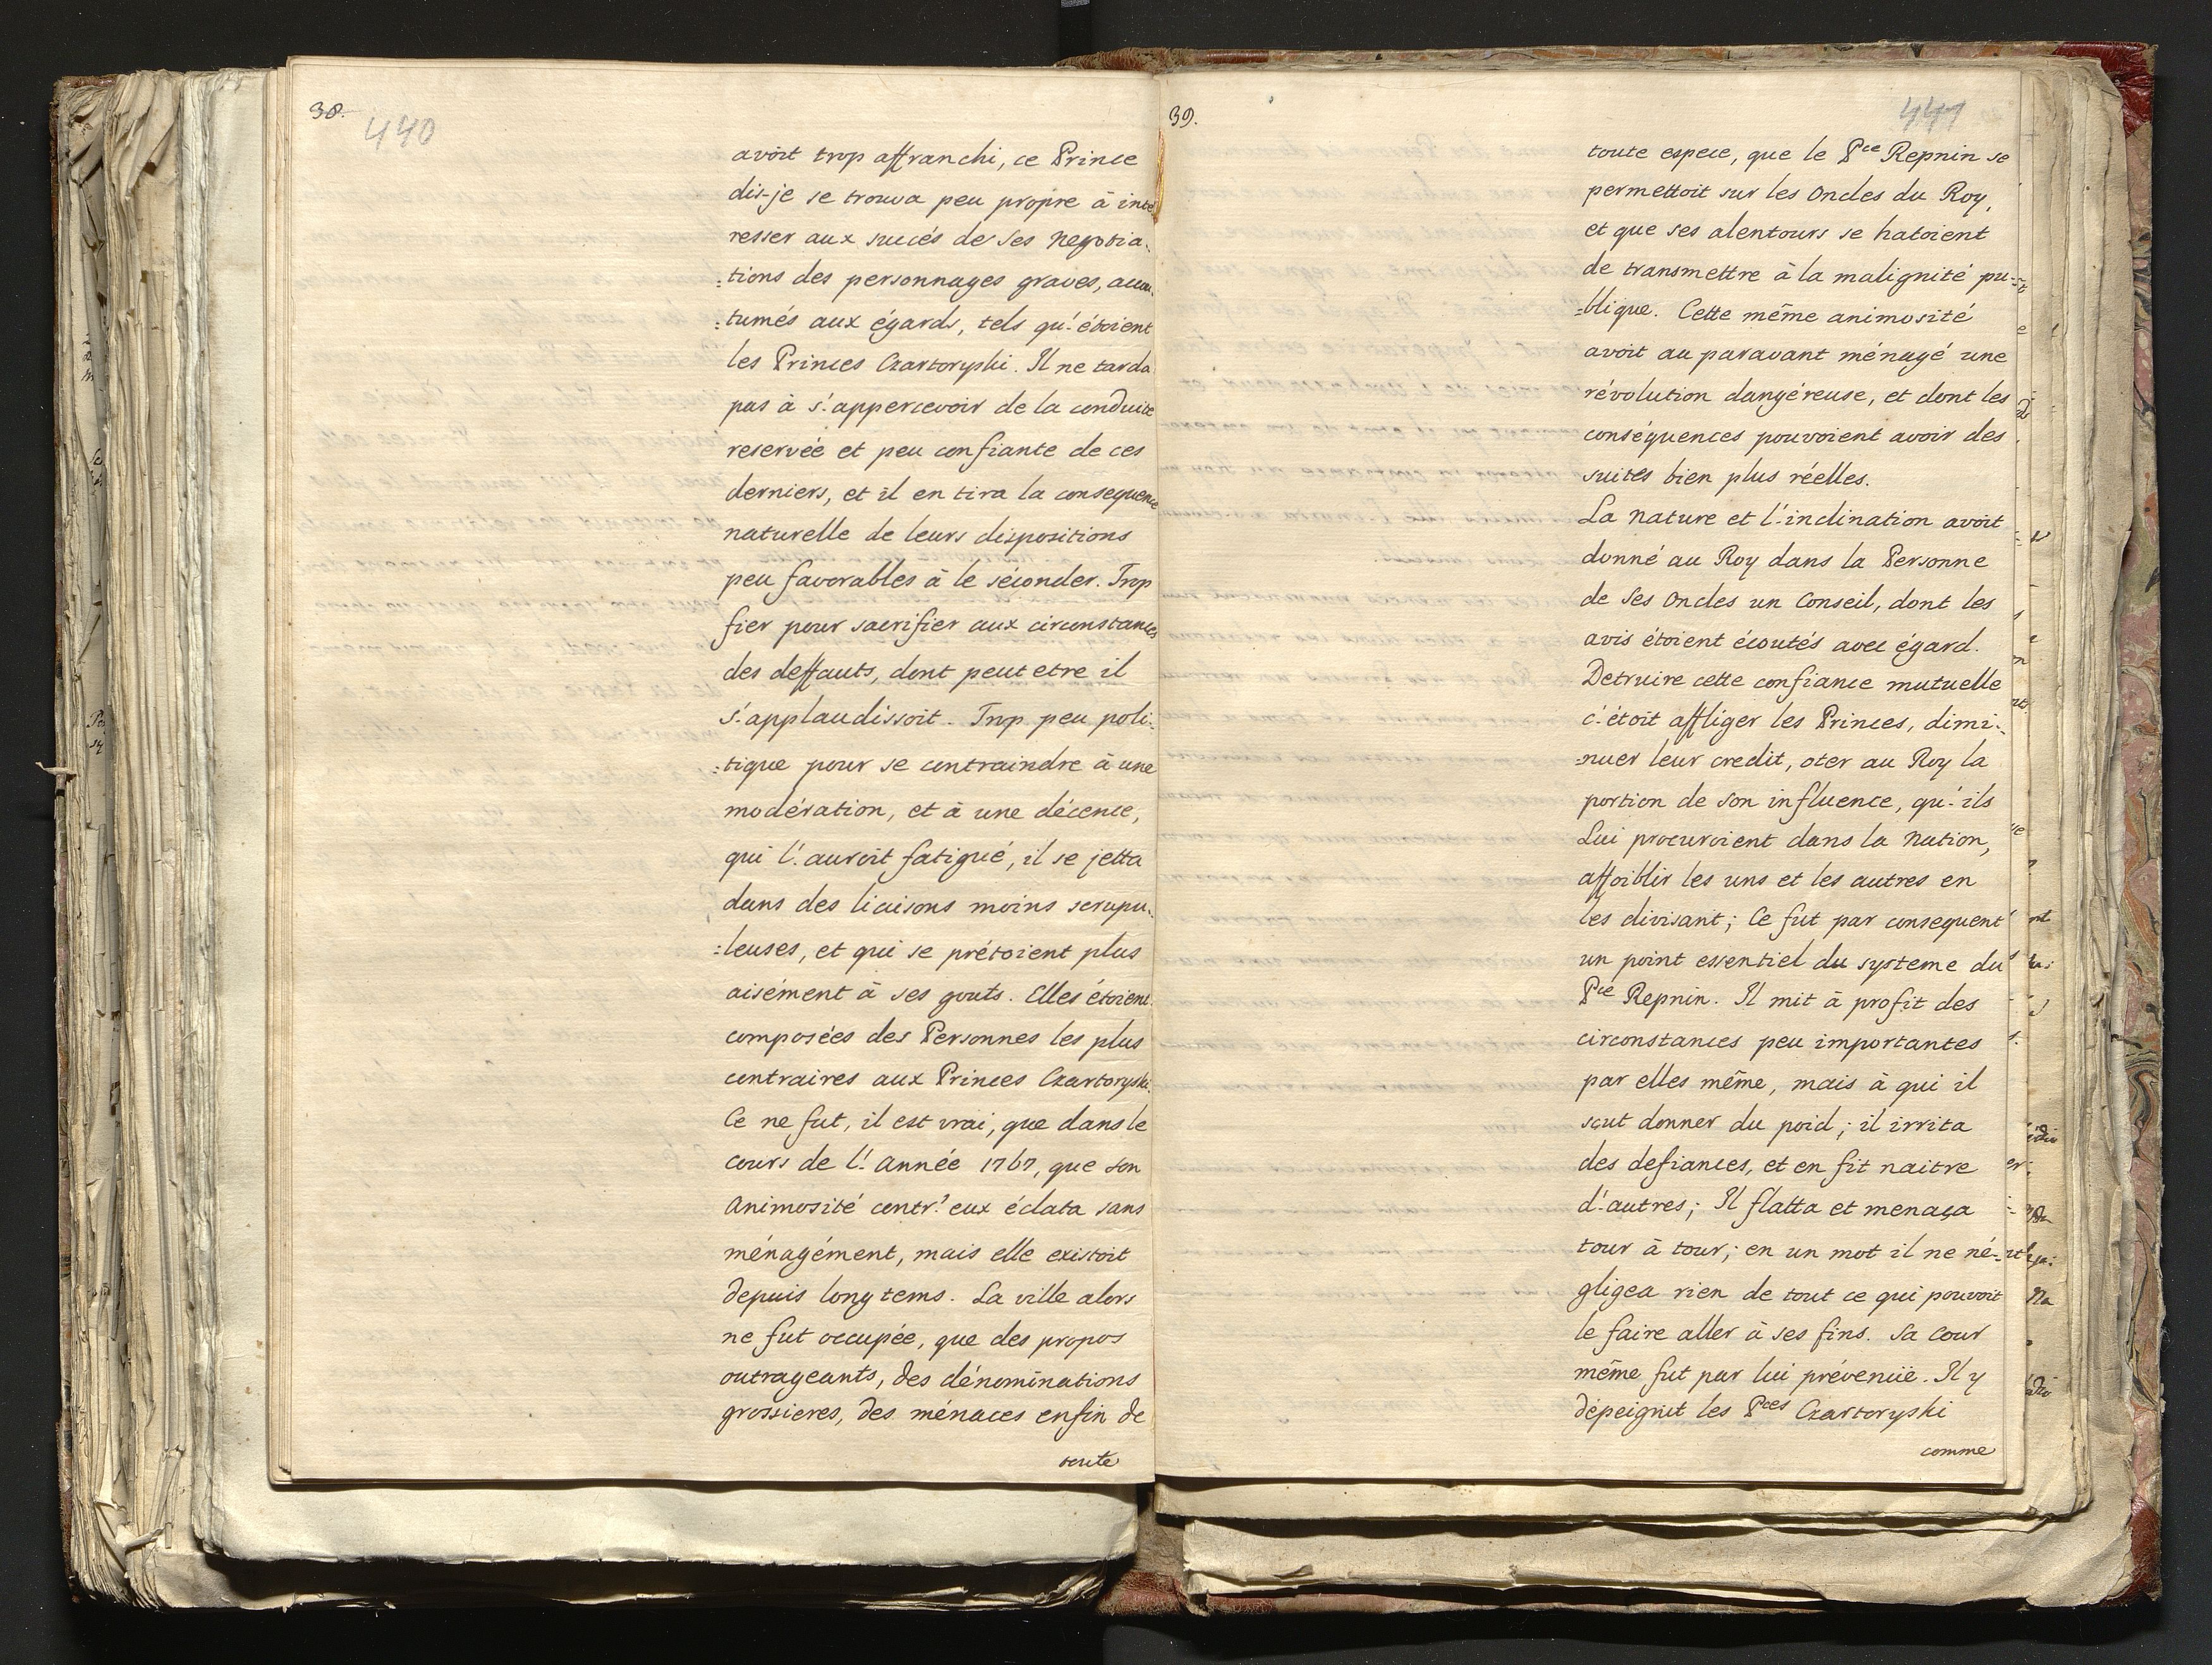 38.
440
avoit trop affranchi, ce Prince
dis-je se trouva peu propre à inté
resser aux succés de ses negotia-
:tions des personnages graves, accou-
:tumés aux égards, tels qu'étoient
les Princes Czartoryski. Il ne tarda
pas à s'appercevoir de la conduite
reservée et peu confiante de ces
derniers, et il en tira la consequence
naturelle de leurs dispositions
peu favorables à le séconder. Trop
fier pour sacrifier aux circonstances
des deffauts, dont peut etre il
s'applaudissoit. Trop peu poli-
:tique pour se contraindre à une
modération, et à une décence,
qui l'auroit fatigué, il se jetta
dans des liaisons moins scrupu-
:leuses, et qui se prétoient plus
aisément à ses gouts. Elles étoient
composées des Personnes les plus
contraires aux Princes Czartoryski.
Ce ne fut, il est vrai, que dans le
cours de l'Année 1767, que son
Animosité contr'eux éclata sans
ménagément, mais elle existoit
depuis long tems. La ville alors
ne fut occupée, que des propos
outrageants, des dénominations
grossieres, des ménaces enfin de
toute
39.
441
toute espece, que le Pce Repnin se
permettoit sur les Oncles du Roy,
et que ses alentours se hatoient
de transmettre à la malignité pu-
:blique. Cette même animosité
avoit au paravant ménagé une
révolution dangéreuse, et dont les
conséquences pouvoient avoir des
suites bien plus réelles.
La Nature et l'inclination avoit
donné au Roy dans la Personne
de Ses Oncles un Conseil, dont les
avis étoient écoutés avec égard.
Detruire cette confiance mutuelle
c'étoit affliger les Princes, dimi-
:nuer leur credit, oter au Roy la
portion de son influence, qu'ils
Lui procuroient dans la Nation,
affoiblir les uns et les autres en
les divisant; Ce fut par consequent
un point essentiel du systeme du
Pce Repnin. Il mit à profit des
circonstances peu importantes
par elles même, mais à qui il
sçut donner du poid; il irrita
des defiances, et en fit naitre
d'autres; Il flatta et menaça
tour à tour; en un mot il ne né-
gligea rien de tout ce qui pouvoit
le faire aller à ses fins. Sa Cour
même fut par lui prévenüe. Il y
dépeignit les Pces Czartoryski
comme